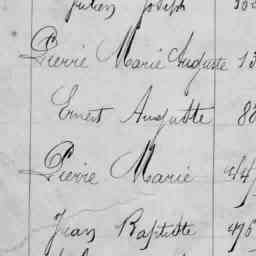 Julien Joseph
Pierre Marie Auguste 13
Ernest Auguste
Pierre Marie
Jean Baptiste 475